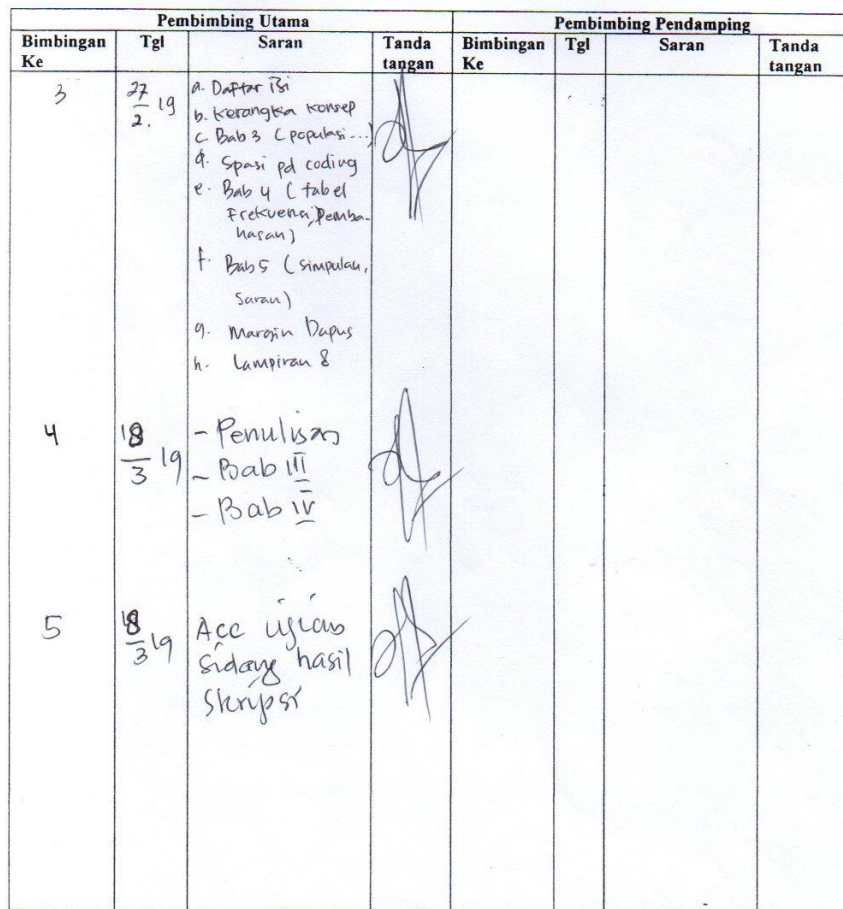 Pembimbing Utama
Pembimbing Pendamping
Bimbingan Ke
Tgl
Saran
Tanda tangan
Bimbingan Ke
Tgl
Saran
Tanda tangan
3
27/2. 19
a. Daftar isi
b. Kerangka konsep
c. Bab 3 (populasi...)
d. Spasi pd coding
e. Bab 4 (tabel
Frekuensi, Pemba-
hasan)
f. Bab 5 (simpulan,
saran)
g. Margin Dapus
h. Lampiran 8
4
18/3 19
- Penulisan
- Bab III
- Bab IV
5
18/3 19
Acc ujian
sidang hasil
skripsi